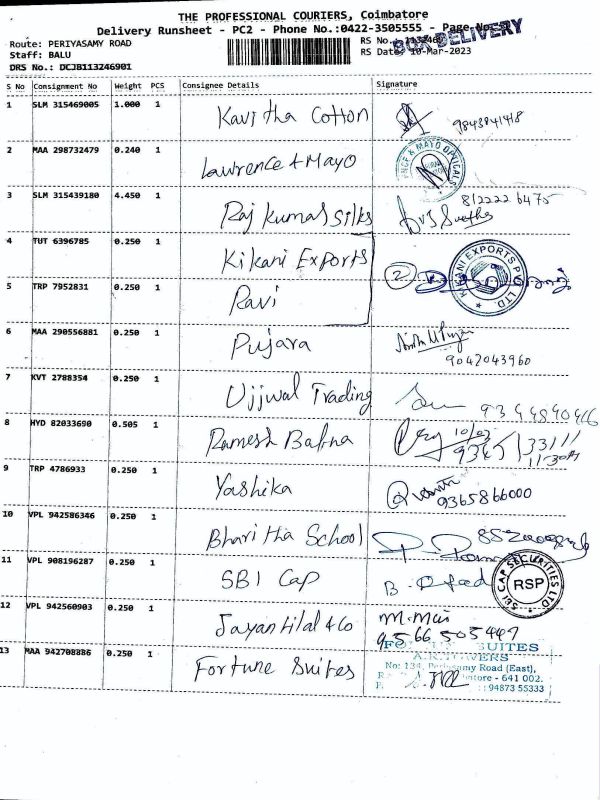 THE PROFESSIONAL COURIERS, Coimbatore
Delivery Runsheet - PC2 - Phone No.:0422-3505555 - Page No.
BOX DELIVERY
Route: PERIYASAMY ROAD
Staff: BALU
RS Date: 10-Mar-2023
DRS No.: DCJB113246901
S No Consignment No Weight PCS Consignee Details Signature
1 SLM 315469005 1.000 1 Kavitha Cotton 9843841418
2 MAA 298732479 0.240 1 Lawrence & Mayo
3 SLM 315439180 4.450 1 Raj Kumar Silks 8122226475
4 TUT 6396785 0.250 1 Kikani Exports
KIKANI EXPORTS PVT LTD
2
5 TRP 7952831 0.250 1 Ravi
6 MAA 290556881 0.250 1 Pujara
9042043960
7 KVT 2788354 0.250 1 Ujjwal Trading
8 HYD 82033690 0.505 1 Ramesh Bafna 10/03
9 TRP 4786933 0.250 1 Yashika 9365866000
10 VPL 942586346 0.250 1 Bharitha School
11 VPL 908196287 0.250 1 SBI Cap
SBI CAP SECURITIES LTD RSP
12 VPL 942560903 0.250 1 Jayantilal & Co
9566505447
13 MAA 942708886 0.250 1 Fortune Suites
SUITES
A.R. TOWERS
No: 134, Periyasamy Road (East),
641 002.
94873 55333